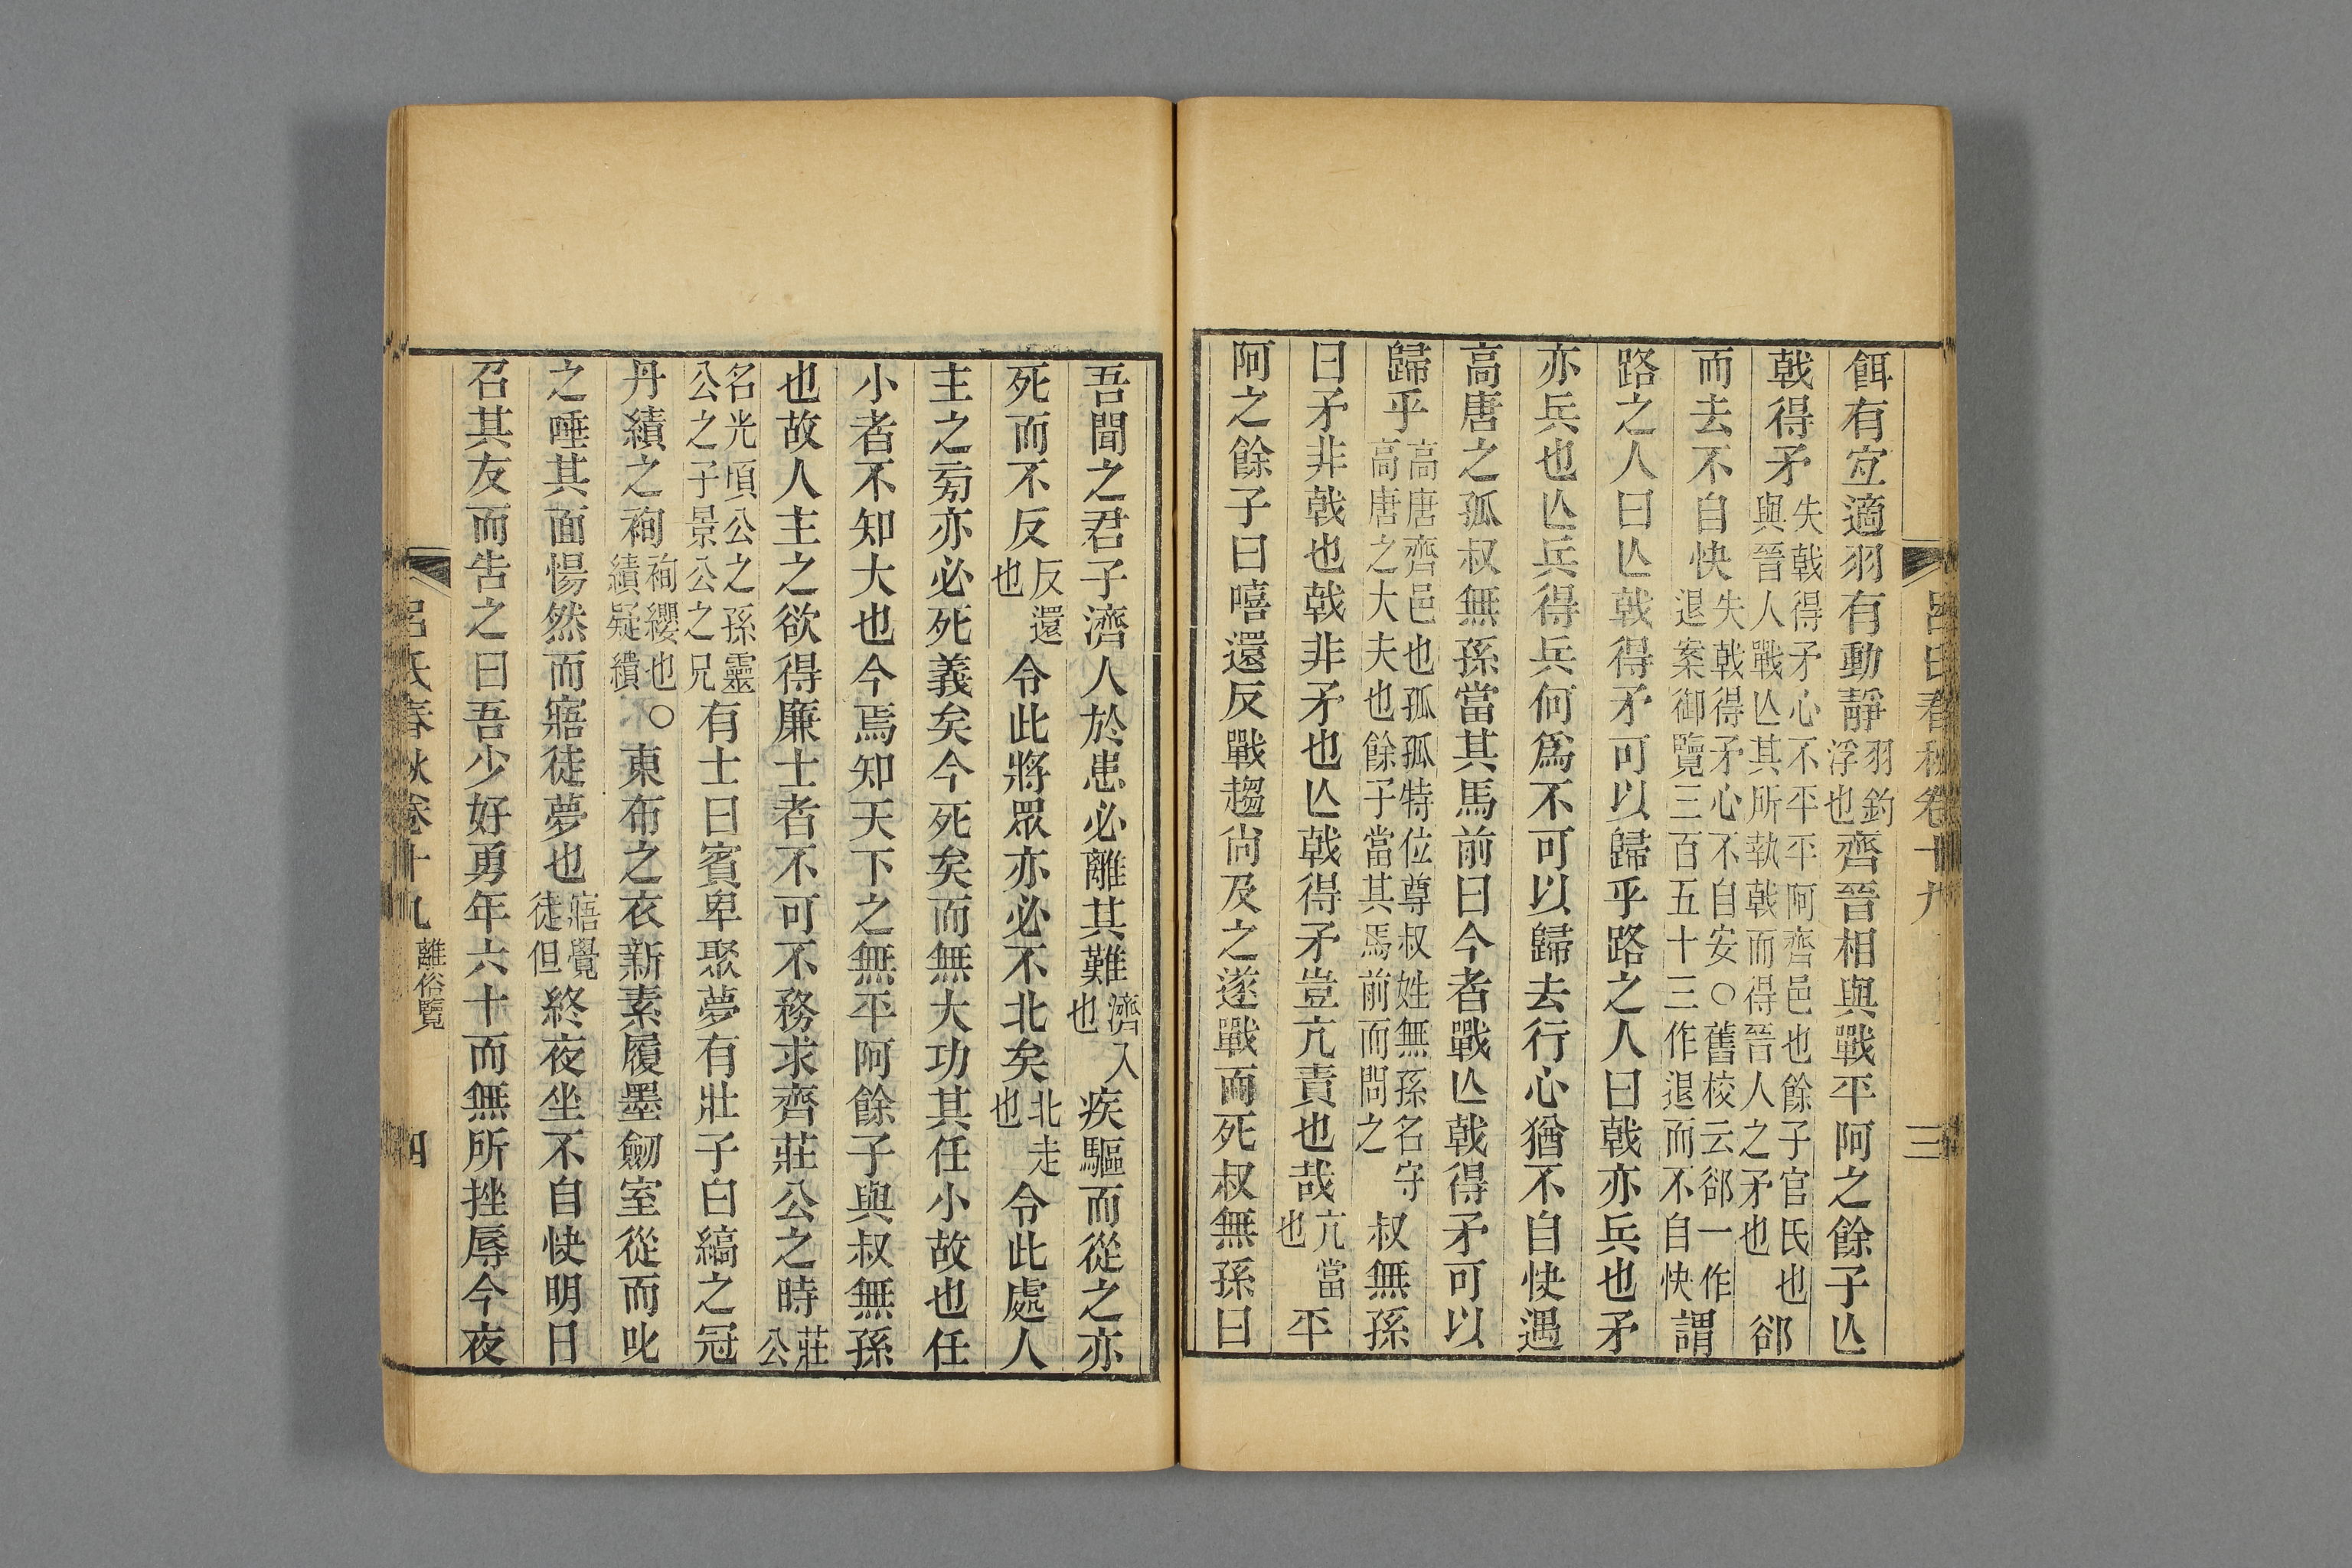 呂氏春秋卷十九 三
餌有宐適羽有動靜羽釣浮也齊晉相與戰平阿之餘子亾
戟得矛失戟得矛心不平平阿齊邑也餘子官氏也與晉人戰亾其所執戟而得晉人之矛也郤
而去不自快失戟得矛心不自安○舊校云郤一作退案御覽三百五十三作退而不自快謂
路之人曰亾戟得矛可以歸乎路之人曰戟亦兵也矛
亦兵也亾兵得兵何爲不可以歸去行心猶不自快遇
高唐之孤叔無孫當其馬前曰今者戰亾戟得矛可以
歸乎高唐齊邑也孤孤特位尊叔姓無孫名守高唐之大夫也餘子當其馬前而問之叔無孫
曰矛非戟也戟非矛也亾戟得矛豈亢責也哉亢當也平
阿之餘子曰嘻還反戰趨尙及之遂戰而死叔無孫曰
吾聞之君子濟人於患必離其難濟入也疾驅而從之亦
死而不反反還也令此將眾亦必不北矣北走也令此處人
主之菊亦必死義矣今死矣而無大功其任小故也任
小者不知大也今焉知天下之無平阿餘子與叔無孫
也故人主之欲得廉士者不可不務求齊莊公之時莊公
名光頃公之孫靈公之子景公之兄有士曰賓卑聚夢有壯子白縞之冠
丹績之袧袧纓也○績疑繢東布之衣新素履墨劒室從而叱
之唾其面惕然而寤徒夢也寤覺徒但終夜坐不自快明日
召其友而告之曰吾少好勇年六十而無所挫辱今夜
呂氏春秋卷十九 離俗覽 四